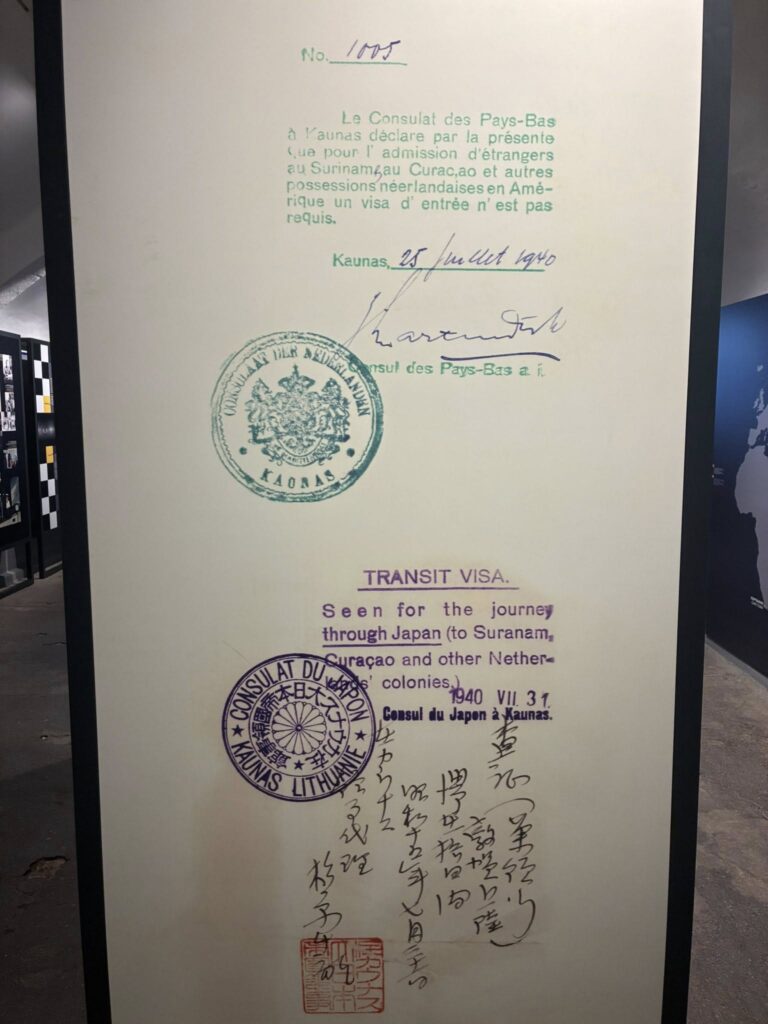 No. 1005
Le Consulat des Pays-Bas
à Kaunas déclare par la présente
que pour l' admission d'étrangers
au Surinam, au Curaç,ao et autres
possessions néerlandaises en Amé-
rique un visa d' entrée n' est pas
requis.
Kaunas, 25 Juillet 1940
Consul des Pays-Bas a. i.
CONSULAAT DER NEDERLANDEN
KAUNAS
TRANSIT VISA.
Seen for the journey
through Japan (to Suranam,
Curaçao and other Nether-
lands' colonies.)
1940 VII 31
Consul du Japon à Kaunas.
CONSULAT DU JAPON
在カウナス大日本帝國領事館
KAUNAS LITHUANIE
査証
敦賀上陸
昭和十五年七月三十一日
在カウナス
領事代理
杉原千畝